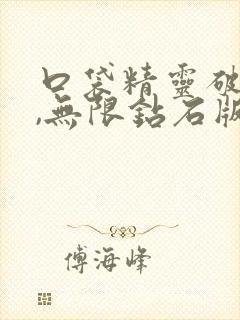 口袋精靈破
,無限鉆石版
傅海峰